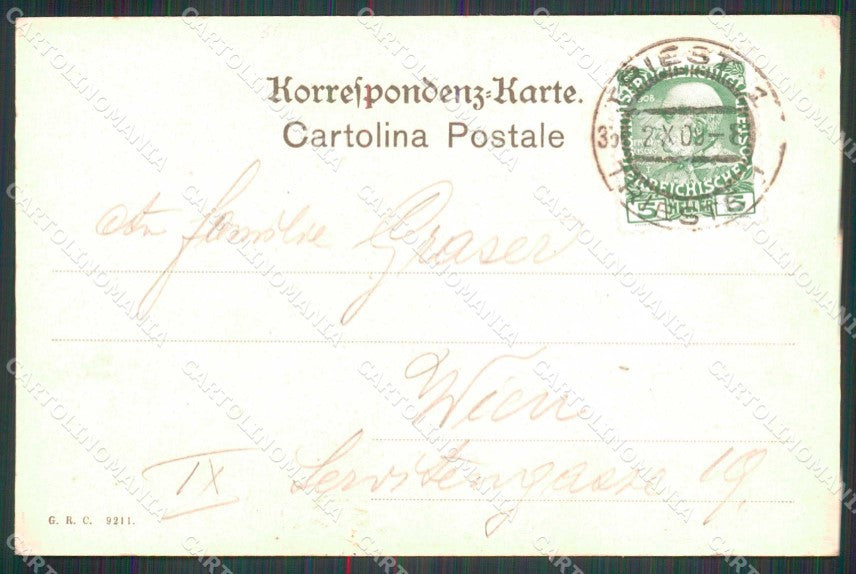 Korrespondenz-Karte.
Cartolina Postale
TRIEST 1
2·X 09
TRIESTE
ÖSTERREICHISCHE
5 5
An Familie Graser
Wien
IX Servitengasse 19.
G. R. C. 9211.
CARTOLINOMANIA